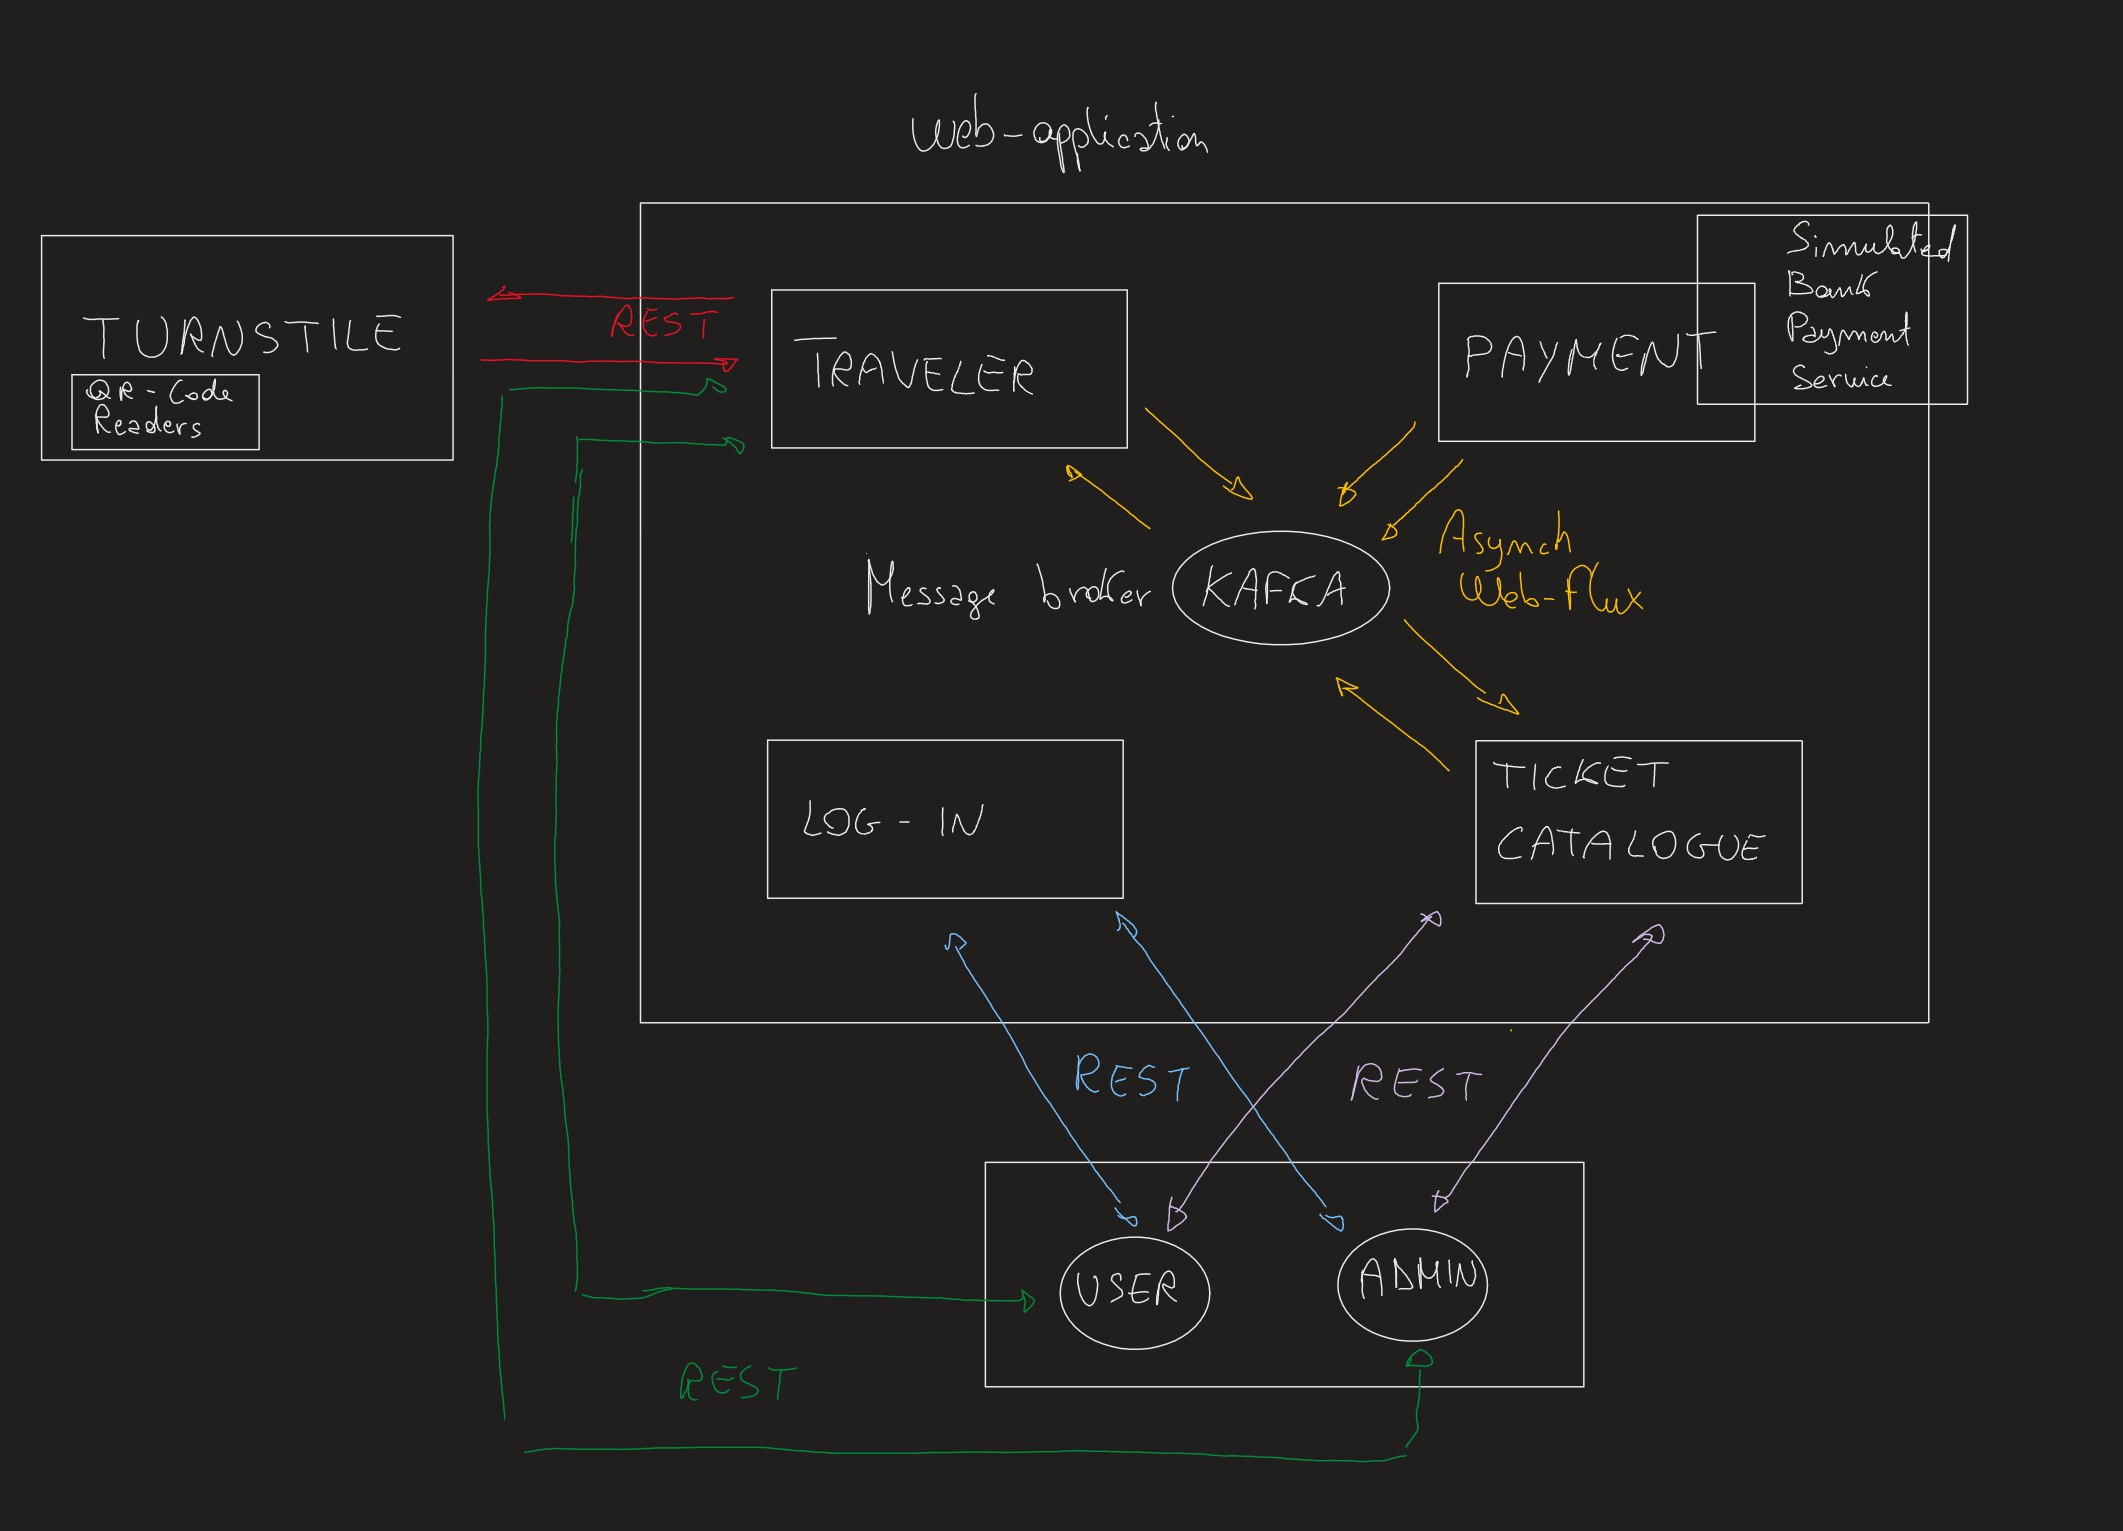 Web-application
TURNSTILE
QR-Code
Readers
REST
TRAVELER
PAYMENT
Simulated
Bank
Payment
Service
Message broker
KAFKA
Asynch
Web-Flux
LOG-IN
TICKET
CATALOGUE
REST
REST
USER
ADMIN
REST